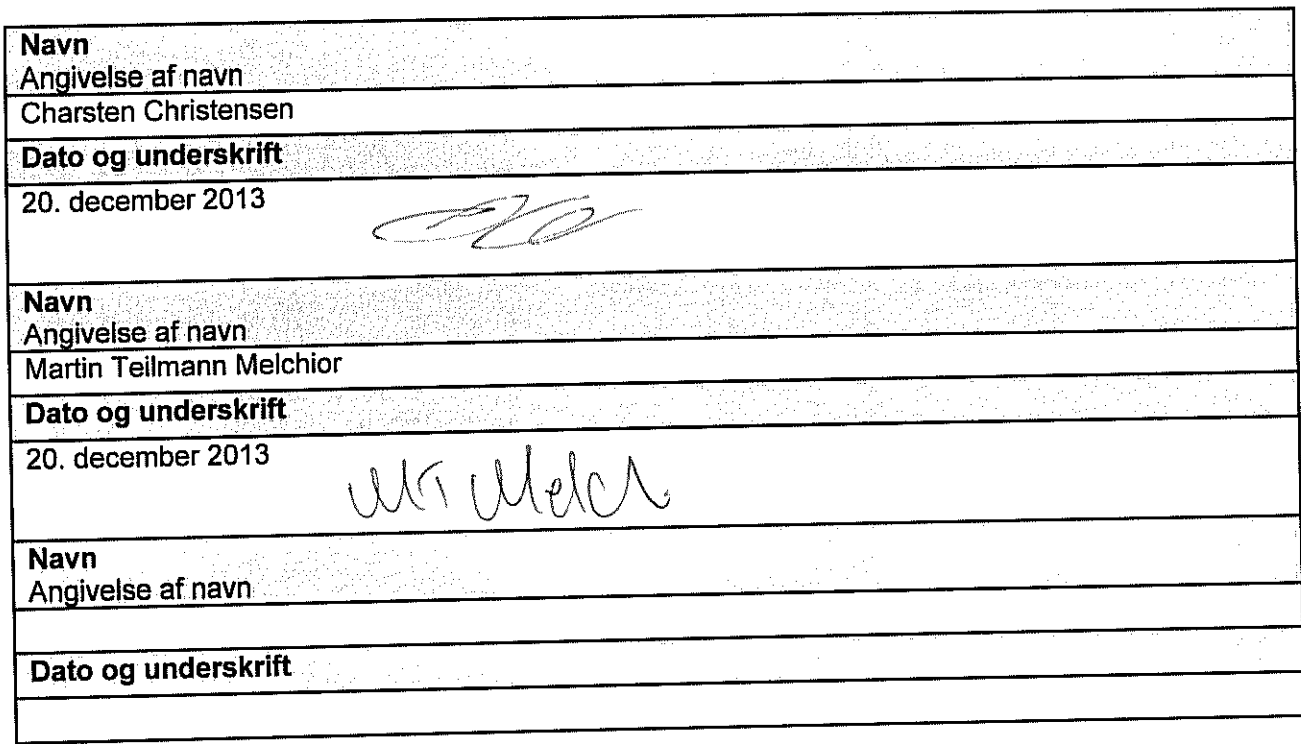 Navn
Angivelse af navn
Charsten Christensen
Dato og underskrift
20. december 2013
Navn
Angivelse af navn
Martin Teilmann Melchior
Dato og underskrift
20. december 2013
MT Melch
Navn
Angivelse af navn
Dato og underskrift